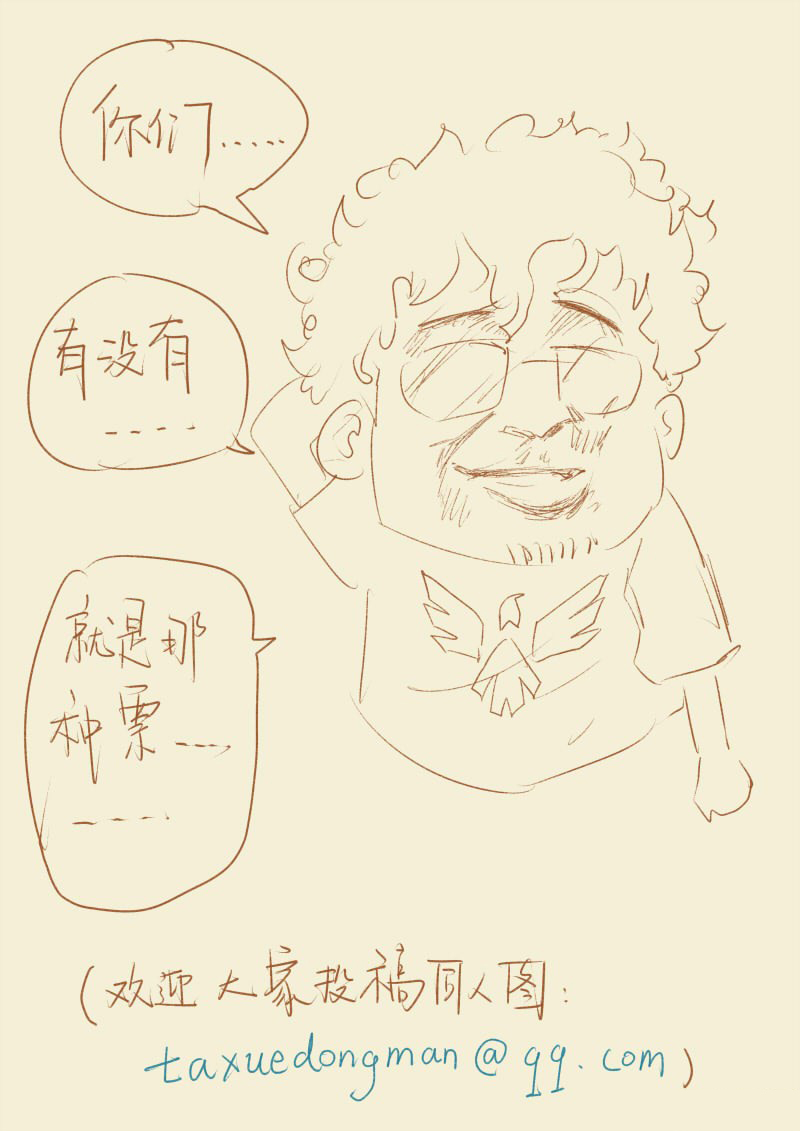 你们......
有没有
----
就是那
种票----
----
(欢迎大家投稿同人图:
taxuedongman@qq.com)